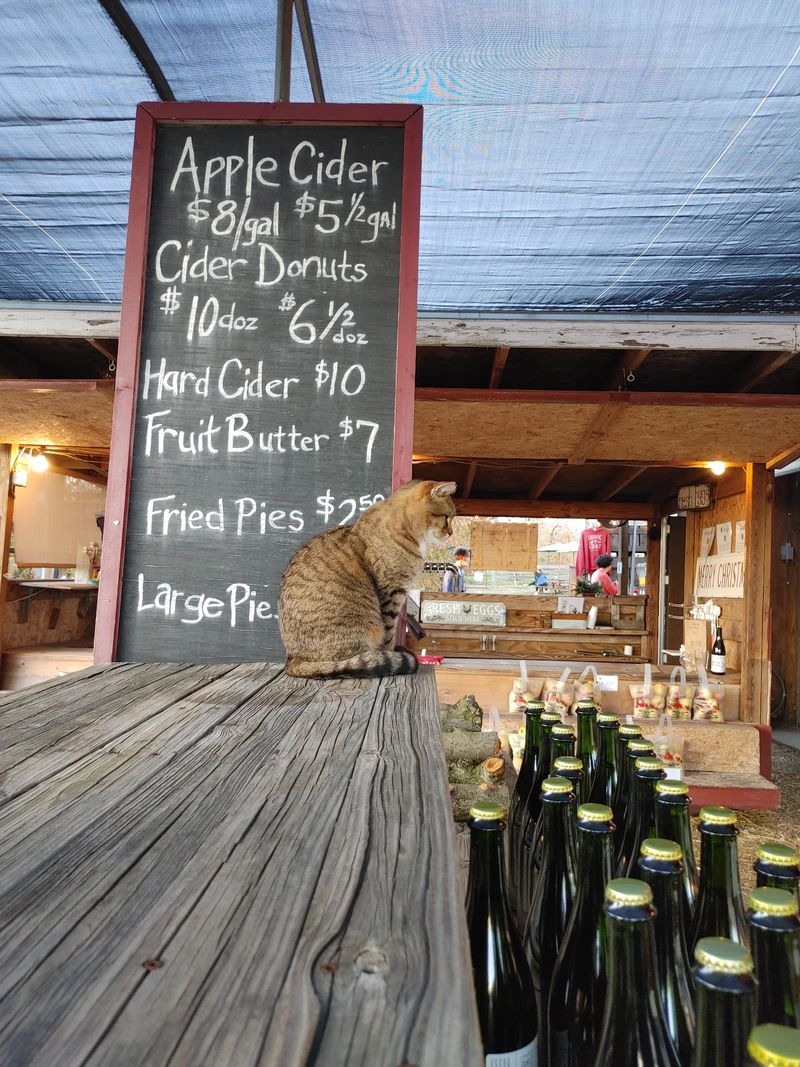 Apple Cider
$8/gal $5 1/2 gal
Cider Donuts
$10 doz $6 1/2 doz
Hard Cider $10
Fruit Butter $7
Fried Pies $2.50
Large Pie
FRESH EGGS
SOLD HERE
MERRY CHRISTM